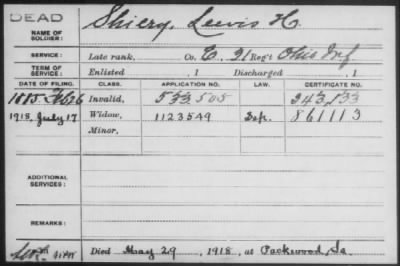 DEAD
NAME OF SOLDIER: Shiery, Lewis H.
SERVICE: Late rank, Co. E, 21 Reg't Ohio Inf
TERM OF SERVICE: Enlisted , 1 Discharged , 1
DATE OF FILING. CLASS. APPLICATION NO. LAW. CERTIFICATE NO.
1885 Feb 26 Invalid, 533,505 343,133
1918, July 17 Widow, 1123549 861113
Minor,
ADDITIONAL SERVICES:
REMARKS:
Died May 29, 1918, at Packwood, Ia.